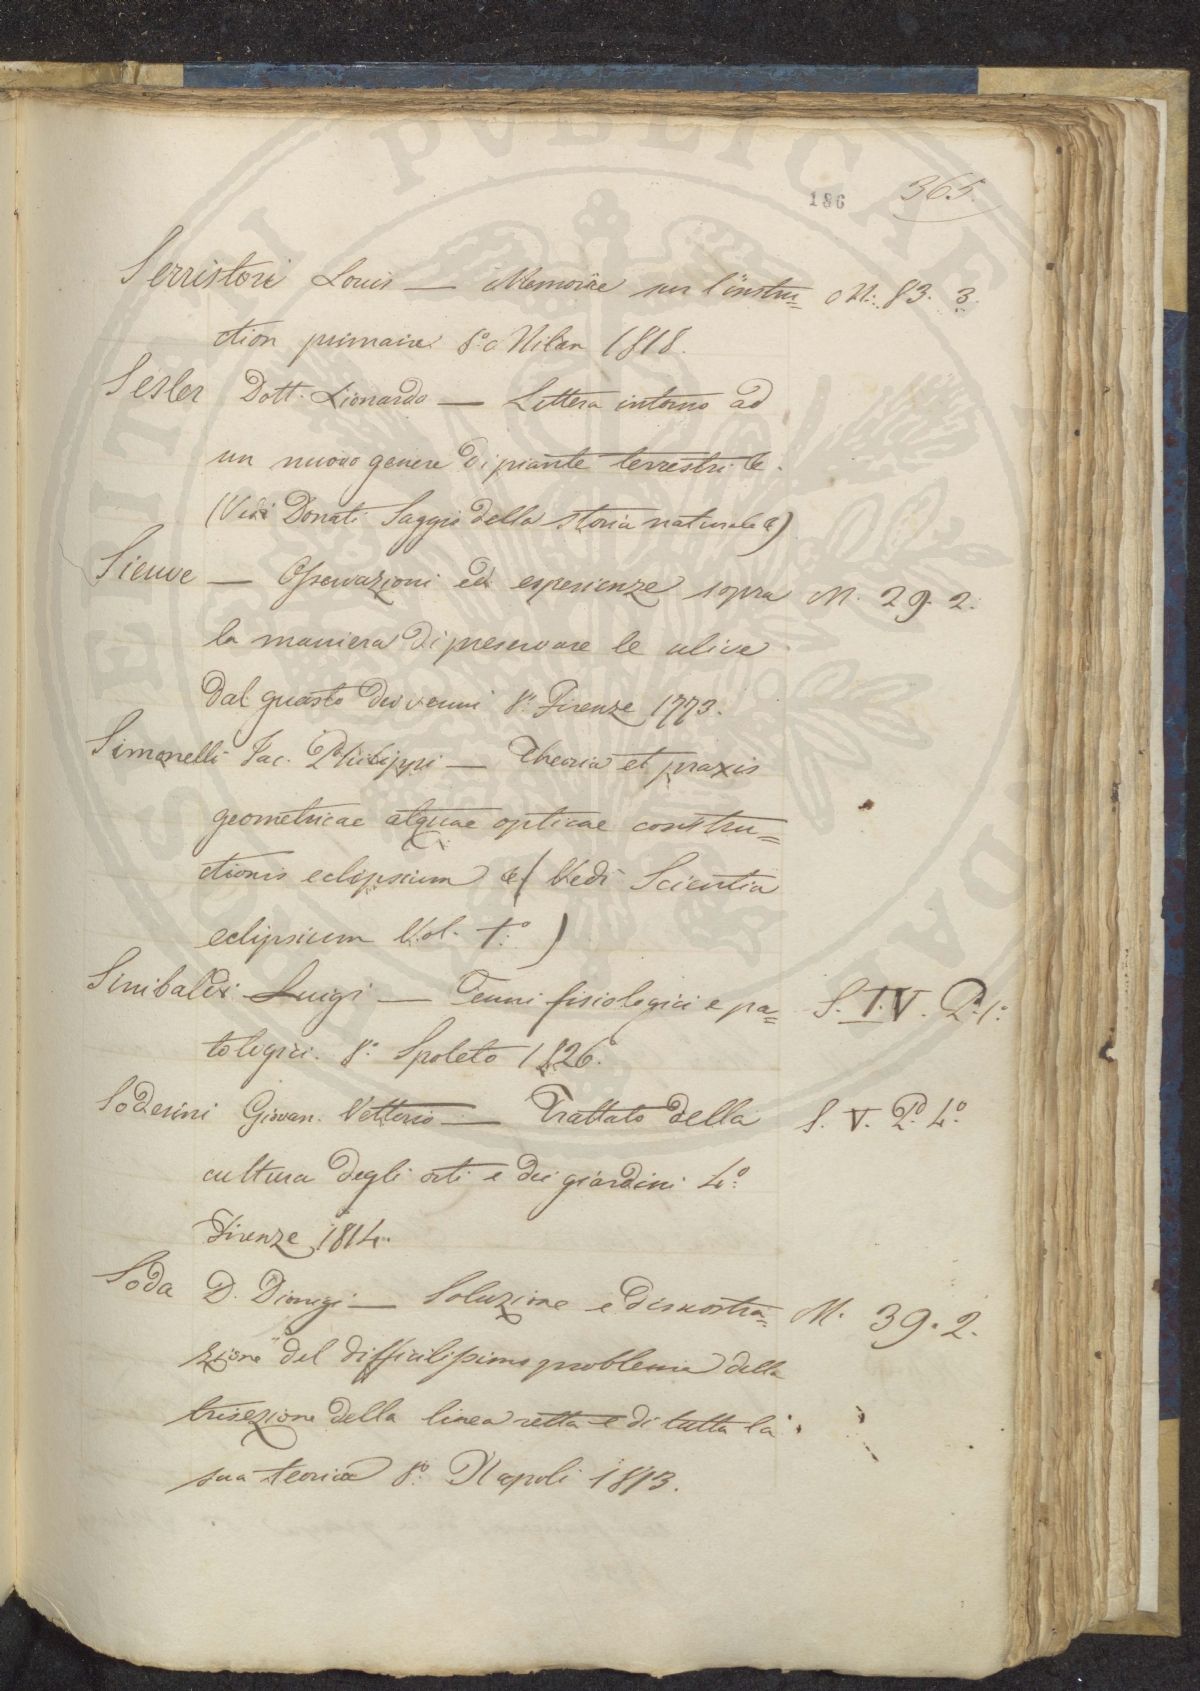 186 365.
Serristori Louis — Memoire sur l'instru= M. 83. 3.
ction primaire 8.o Milan 1818.
Sesler Dott. Lionardo — Lettera intorno ad
un nuovo genere di piante terrestri &.
(Vedi Donati Saggio della storia naturale &)
Sieuve — Osservazioni ed esperienze sopra M. 29. 2.
la maniera di preservare le ulive
dal guasto dei vermi 8.o Firenze 1773.
Simonelli Jac. Philippi — Theoria et praxis
geometricae atquae opticae constru=
ctionis eclipsium &( Vedi Scientia
eclipsium Vol. 1.o )
Sinibaldi Luigi — Cenni fisiologici e pa= S. IV. P. 1.o
tologici. 8.o Spoleto 1826.
Soderini Giovan. Vettorio — Trattato della S. V. P.o 4.o
cultura degli orti e dei giardini 4.o
Firenze 1814.
Soda D. Dionigi — Soluzione e dismostra= M. 39. 2.
zione del difficilissimo problema della
trisezione della linea retta e di tutta la
sua teoria 8.o Napoli 1813.